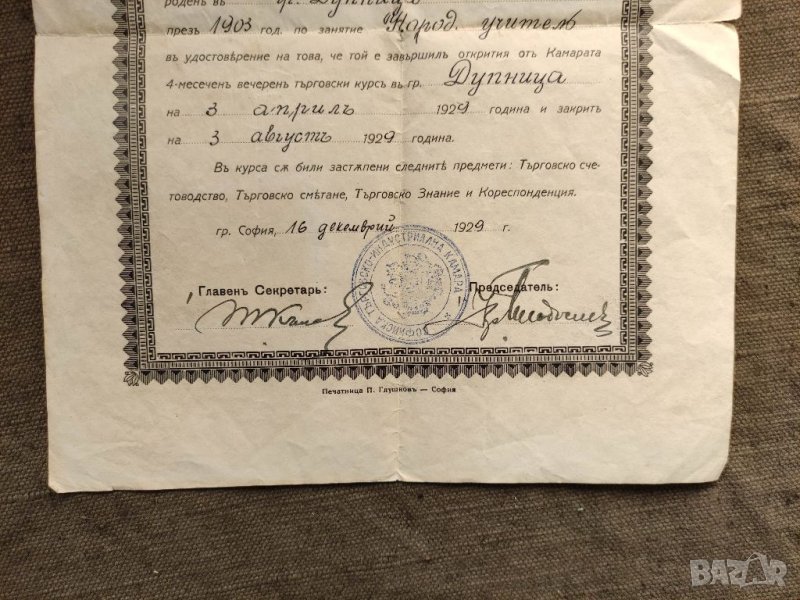 роденъ въ гр. Дупница
презъ 1903 год. по занятие Народ. учитель
въ удостовѣрение на това, че той е завършилъ открития отъ Камарата
4-месеченъ вечеренъ търговски курсъ въ гр. Дупница
на 3 априлъ 1929 година и закритъ
на 3 августъ 1929 година.
Въ курса сѫ били застѫпени следнитѣ предмети: Търговско сче-
товодство, Търговско смѣтане, Търговско Знание и Кореспонденция.
гр. София, 16 декемврий 1929 г.
СОФИЙСКА ТЪРГОВСКО-ИНДУСТРИАЛНА КАМАРА
Главенъ Секретарь:
Председатель:
Печатница П. Глушковъ — София
BAZAR